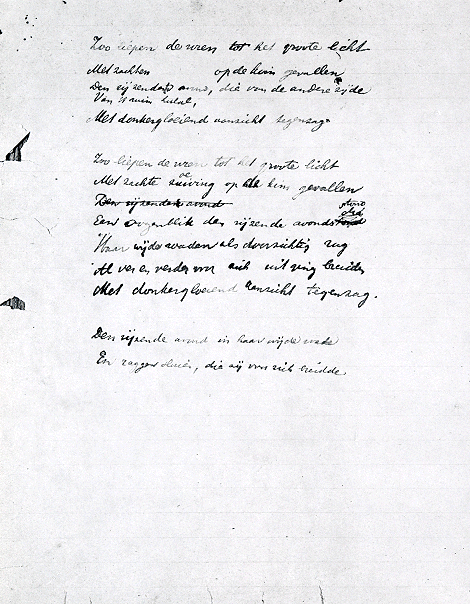 Zoo liepen de uren tot het groote licht
Met zachten op de kim gevallen
Den rijzenden avond, die van de andere zijde
Van 't ruim
Met donkergloeiend aanzicht tegenzag.
Zoo liepen de uren tot het groote licht
Met zachte zweving op de kim gevallen
Den rijzenden avond
Een oogenblik den rijzende avond
Haar wijde waden als doorzichtig rag
Al ver en verder voor zich uit ging breiden
Met donkergloeiend aanzicht tegenzag.
Den rijzende avond in haar wijde wade
En ragge, die zij voor zich breidde